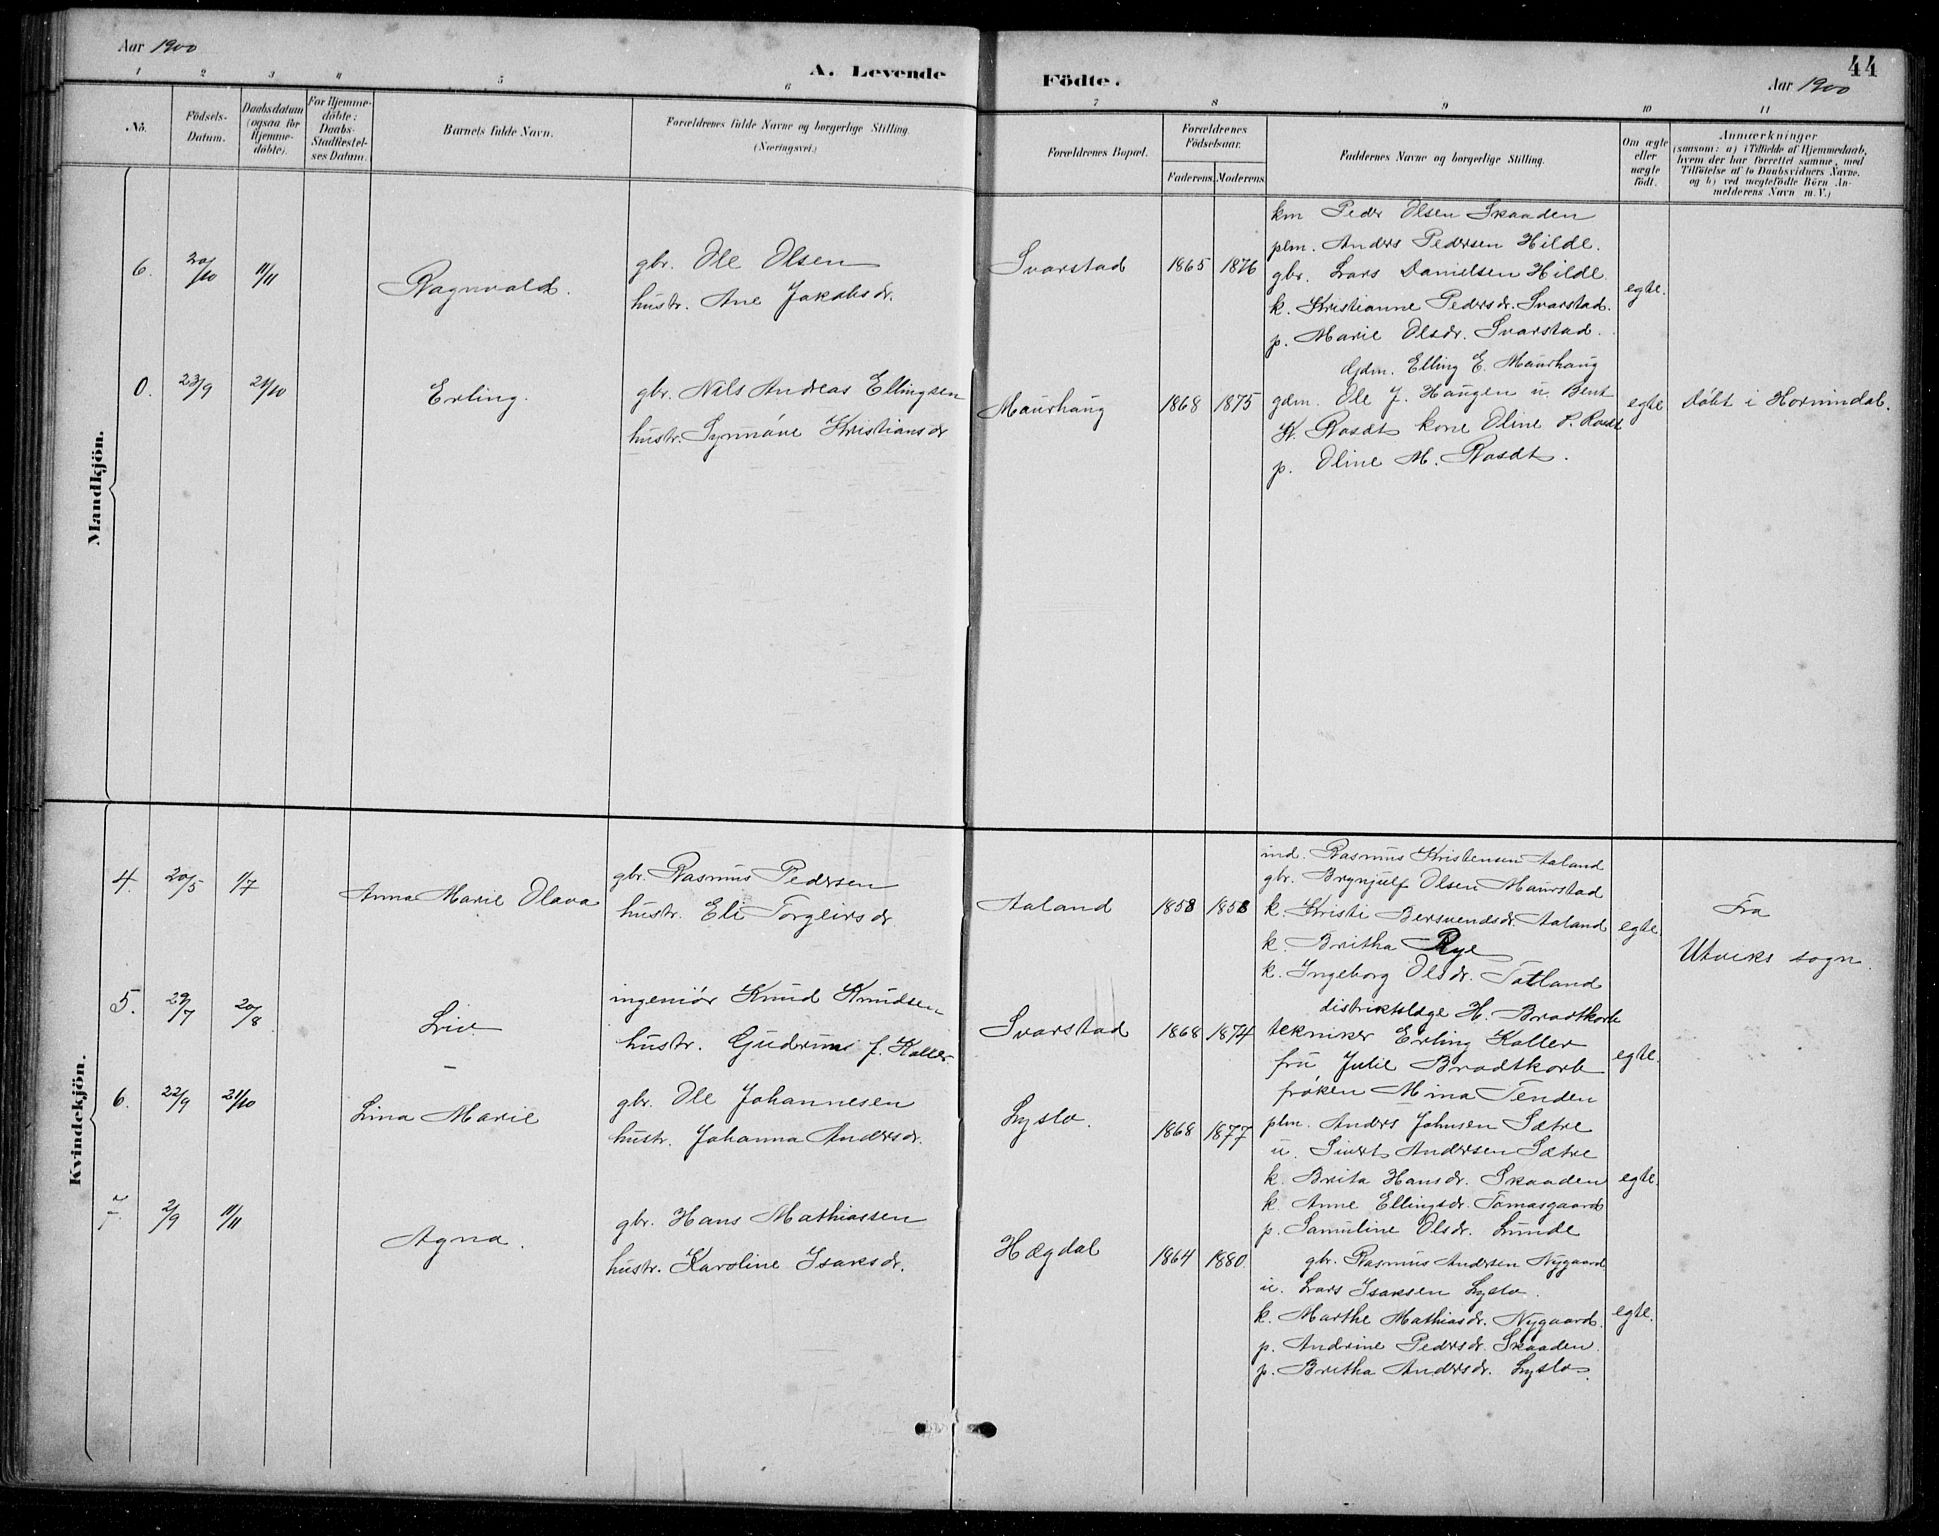 Aar 1900
A. Levende Födte.
44
Aar 1900
1 2 3 4 5 6 7 8 9 10 11
No.
Födsels-Datum.
Daabsdatum (ogsaa for Hjemmedöbte).
For Hjemmedöbte: Daabs-Stadfestelses Datum.
Barnets fulde Navn.
Forældrenes fulde Navne og borgerlige Stilling. (Næringsvei.)
Forældrenes Bopæl.
Forældrenes Födselsaar.
Faderens. Moderens.
Faddernes Navne og borgerlige Stilling.
Om ægte eller uægte födt.
Anmærkninger
(saasom: a) i Tilfælde af Hjemmedaab, hvem der har forrettet samme, med Tilföielse af to Daabsvidners Navne, og b) ved uægtefödte Börn Anmelderens Navn m. V.)
Mandkjön.
6. 20/10 11/11 Ragnvald.
gbr. Ole Olsen
hustr. Ane Jakobsdr.
Svarstad 1865 1876
km Peder Olsen Skaaden
plm. Anders Pedersen Hilde.
gbr. Lars Danielsen Hilde.
k. Kristianne Pedersdr. Svarstad.
p. Marie Olsdr. Svarstad.
egte.
0. 23/9 21/10 Erling.
gbr. Nils Andreas Ellingsen
hustr. Synnøve Kristiansdr
Maurhaug 1868 1875
Gdm. Elling E. Maurhaug
gdm. Ole J. Haugen u. Bent
K. Raadt kone Oline P. Raadt
p. Oline M. Raadt.
egte
Døbt i Hornindal.
Kvindekjön.
4. 20/5 1/7 Anna Marie Olava
gbr. Rasmus Pedersen
hustr. Eli Torgeirsdr.
Aaland 1858 1858
ind. Rasmus Kristensen Aaland
gbr. Brynjulf Olsen Maurstad
k. Kristi Bersvendsdr. Aaland
k. Britha Rye
k. Ingeborg Olsdr. Totland
egte.
Fra
Utviks sogn.
5. 29/7 20/8 Liv
ingeniør Knud Knudsen
hustr. Gudrun f. Koller
Svarstad 1868 1874
distriktslæge H. Brodtkorb
tekniker Erling Koller
fru Julie Brodtkorb
frøken Mina Tenden
egte.
6. 22/9 21/10 Lina Marie
gbr. Ole Johannesen
hustr. Johanna Andersdr.
Lyslo. 1868 1877
plm. Anders Johnsen Sætre
u. Sivert Andersen Sætre
k. Brita Hansdr. Skaaden
k. Anne Ellingsdr. Tomasgaard
p. Samuline Olsdr. Lunde
egte.
7. 2/9 11/11 Agna.
gbr. Hans Mathiassen
hustr. Karoline Isaksdr.
Hægdal 1864 1880
gbr. Rasmus Andersen Nygaard
u. Lars Isaksen Lyslo.
k. Marthe Mathiasdr. Nygaard.
p. Andrine Pedersdr. Skaaden.
p. Britha Andersdr. Lyslo.
egte.